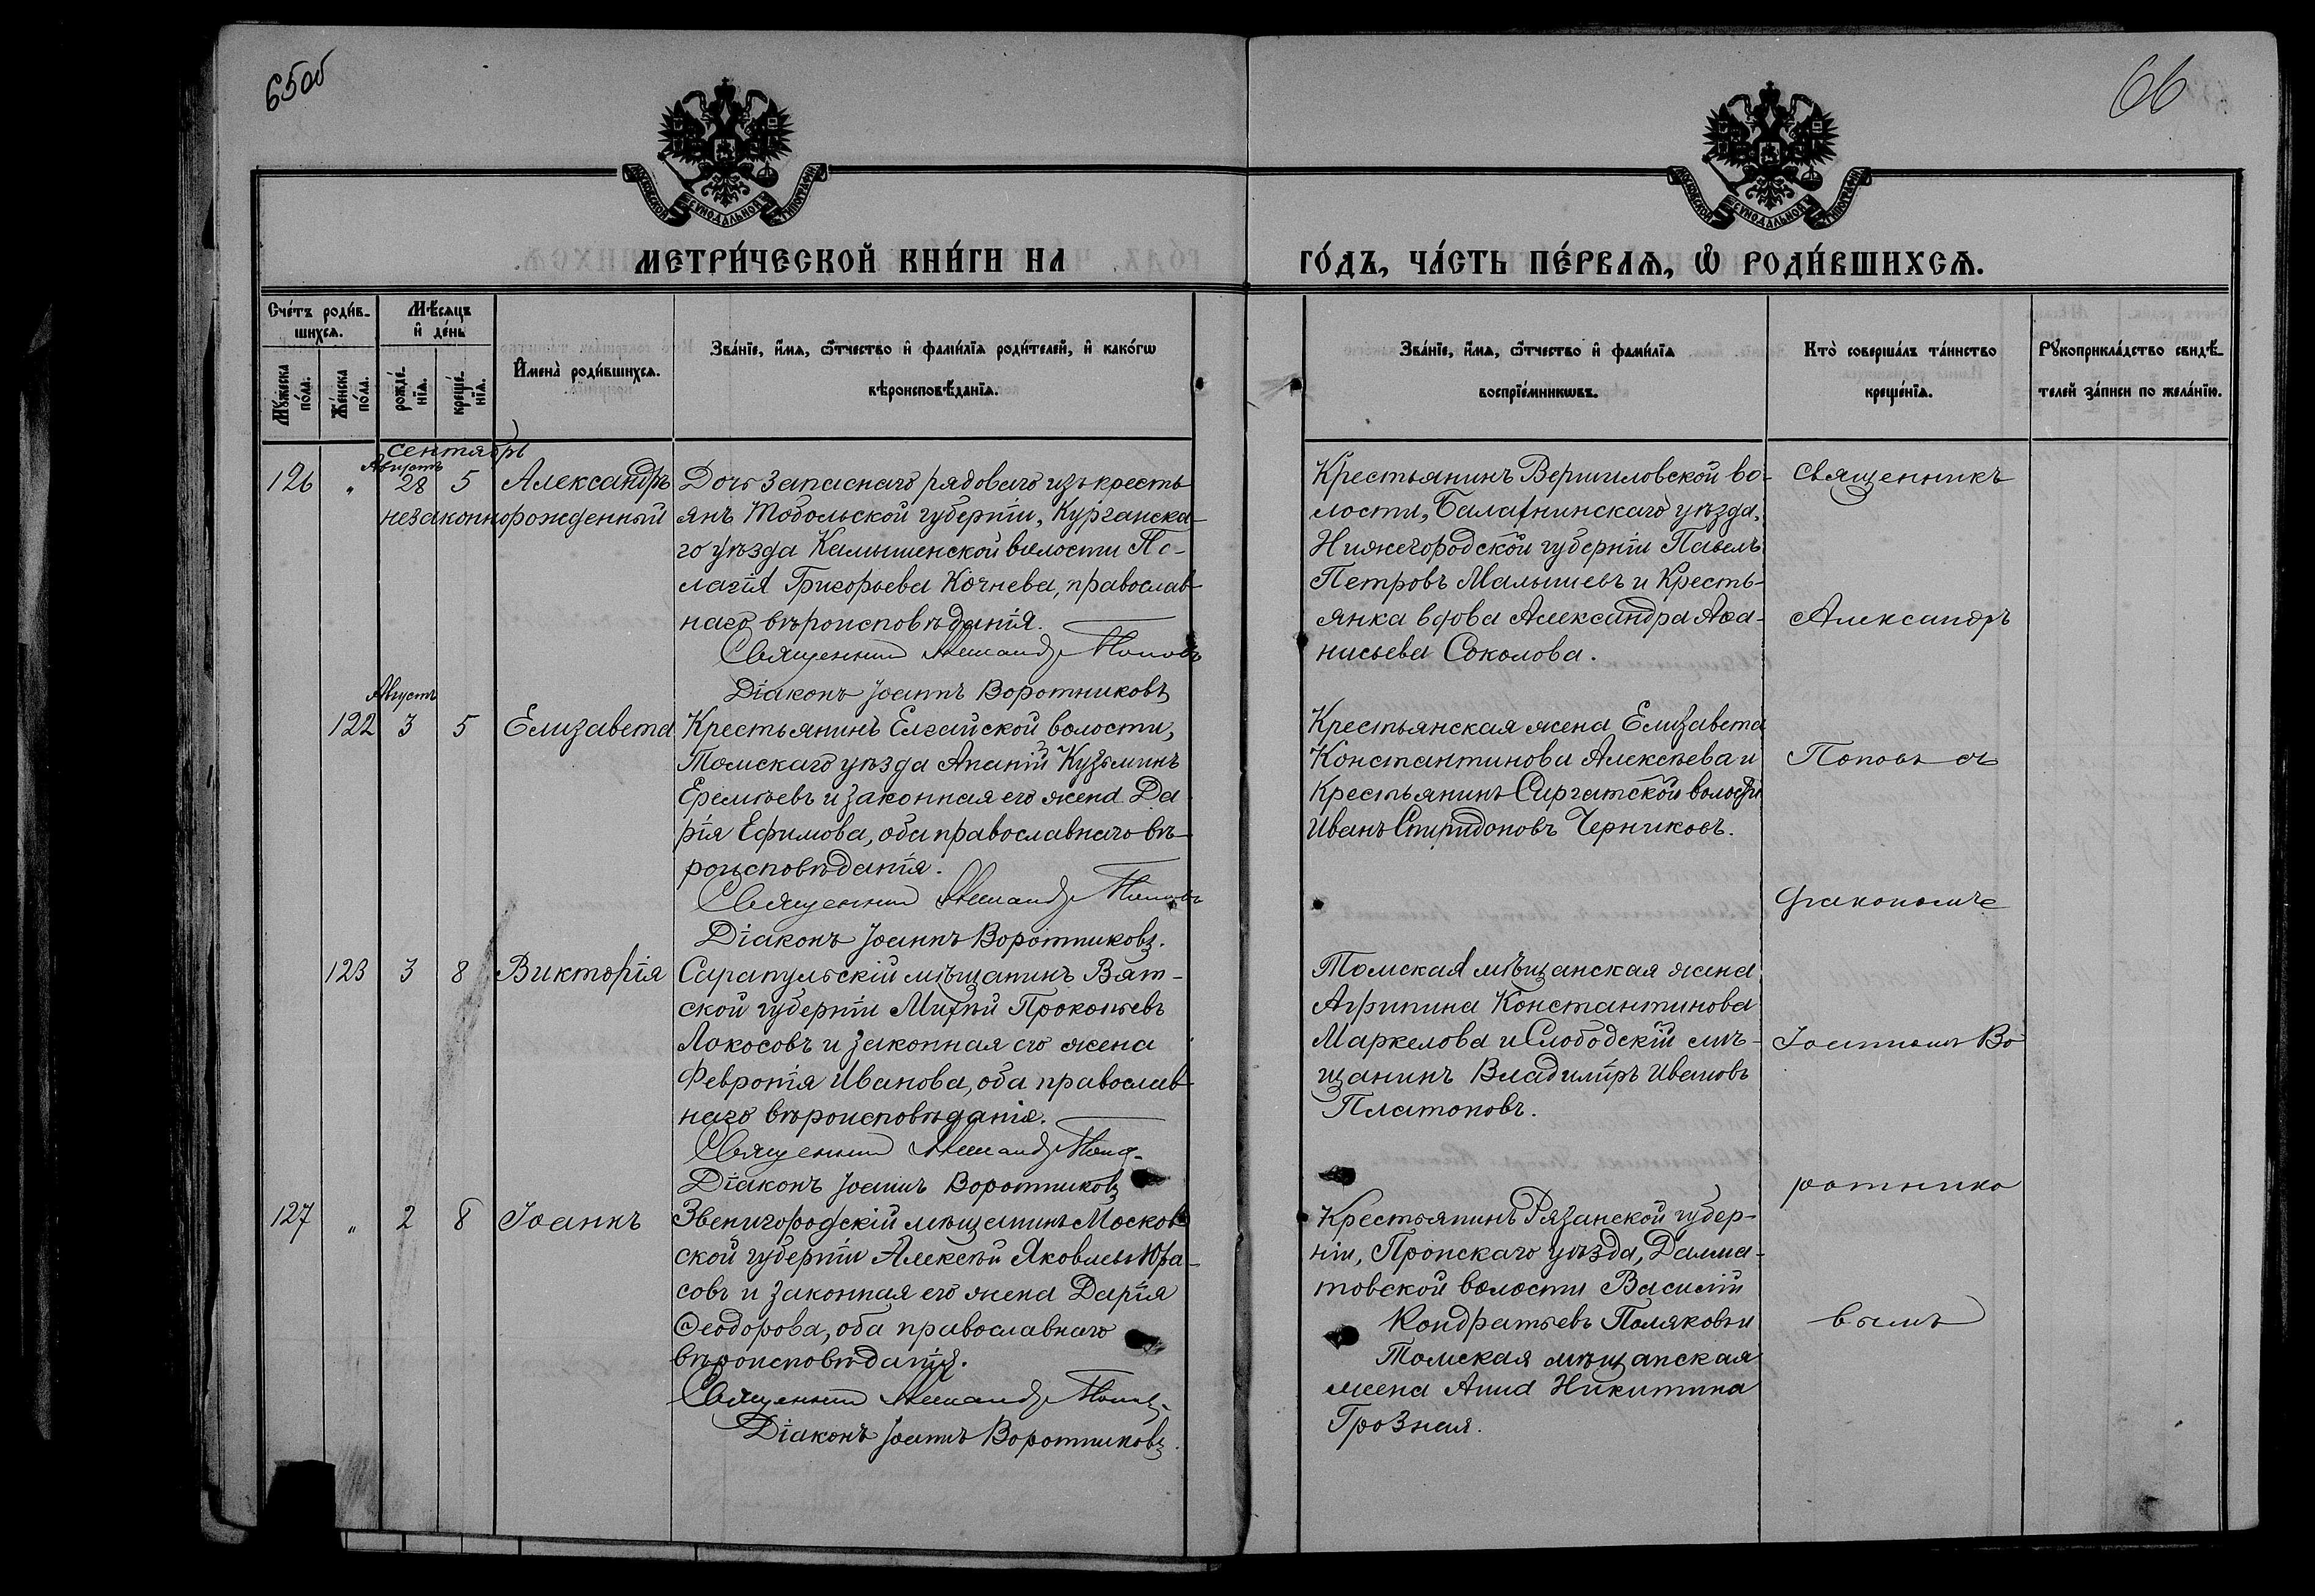 65об
66
МОСКОВСКОЙ СѴНОДАЛЬНОЙ ТИПОГРАФІИ
МОСКОВСКОЙ СѴНОДАЛЬНОЙ ТИПОГРАФІИ
МЕТРИ́ЧЕСКОЙ КНИ́ГИ НА
ГО́ДЪ, ЧА́СТЬ ПЕ́РВАѦ, Ѡ РОДИ́ВШИХСѦ.
Сче́тъ роди́в-
шихсѧ.
Мꙋ́жеска по́ла.
Же́нска по́ла.
Мѣ́сяцъ
и҆ де́нь
рожде́-нїѧ.
креще́-нїѧ.
И҆мена̀ роди́вшихсѧ.
Зва́нїе, и҆́мѧ, ѻ҆́тчество и҆ фами́лїѧ роди́телей, и҆ како́гѡ
вѣроисповѣ́данїѧ.
Зва́нїе, и҆́мѧ, ѻ҆́тчество и҆ фами́лїѧ
воспрїе́мникѡвъ.
Кто̀ соверша́лъ та́инство
креще́нїѧ.
Рꙋкоприкла́дство свидѣ́-
телей за́писи по жела́нїю.
сентябрь
Августъ
126 " 28 5 Александръ
незаконнорожденный
Дочь запаснаго рядоваго изъ кресть
янъ Тобольской губерніи, Курганска-
го уѣзда Камышенской волости Пе-
лагія Григорьева Кочнева, православ-
наго вѣроисповѣданія.
Священникъ Александръ Поповъ
Діаконъ Іоаннъ Воротниковъ
Крестьянинъ Вершиловской во-
лости, Балахнинскаго уѣзда,
Нижегородской губерніи Павелъ
Петровъ Малышевъ и Кресть-
янка вдова Александра Аѳа-
нисьева Соколова.
Августъ
122 3 5 Елизавета
Крестьянинъ Елгайской волости,
Томскаго уѣзда Ананій Кузьминъ
Еремѣевъ и законная его жена Да
рія Ефимова, оба православнаго вѣ-
роисповѣданія.
Священникъ Александръ Поповъ
Діаконъ Іоаннъ Воротниковъ.
Крестьянская жена Елизавета
Константинова Алексѣева и
Крестьянинъ Сыргатской волости
Иванъ Спиридоновъ Черниковъ.
123 3 8 Викторія
Сарапульскій мѣщанинъ Вят-
ской губерніи Михѣй Прокопьевъ
Локосовъ и законная его жена
Февронія Иванова, оба православ-
наго вѣроисповѣданія.
Священникъ Александръ Поповъ
Діаконъ Іоаннъ Воротниковъ
Томская мѣщанская жена
Агрипина Константинова
Маркелова и Слободскій мѣ-
щанинъ Владиміръ Ивановъ
Платоновъ.
127 " 2 8 Іоаннъ
Звенигородскій мѣщанинъ Москов
ской губерніи Алексѣй Яковлевъ Юра-
совъ и законная его жена Дарія
Ѳеодорова, оба православнаго
вѣроисповѣданія.
Священникъ Александръ Поповъ
Діаконъ Іоаннъ Воротниковъ.
Крестьянинъ Рязанской губер-
ніи, Пронскаго уѣзда, Далма-
товской волости Василій
Кондратьевъ Поляковъ и
Томская мѣщанская
жена Анна Никитина
Грозная.
Священникъ
Александръ
Поповъ съ
Діакономъ
Іоанномъ Во
ротнико
вымъ